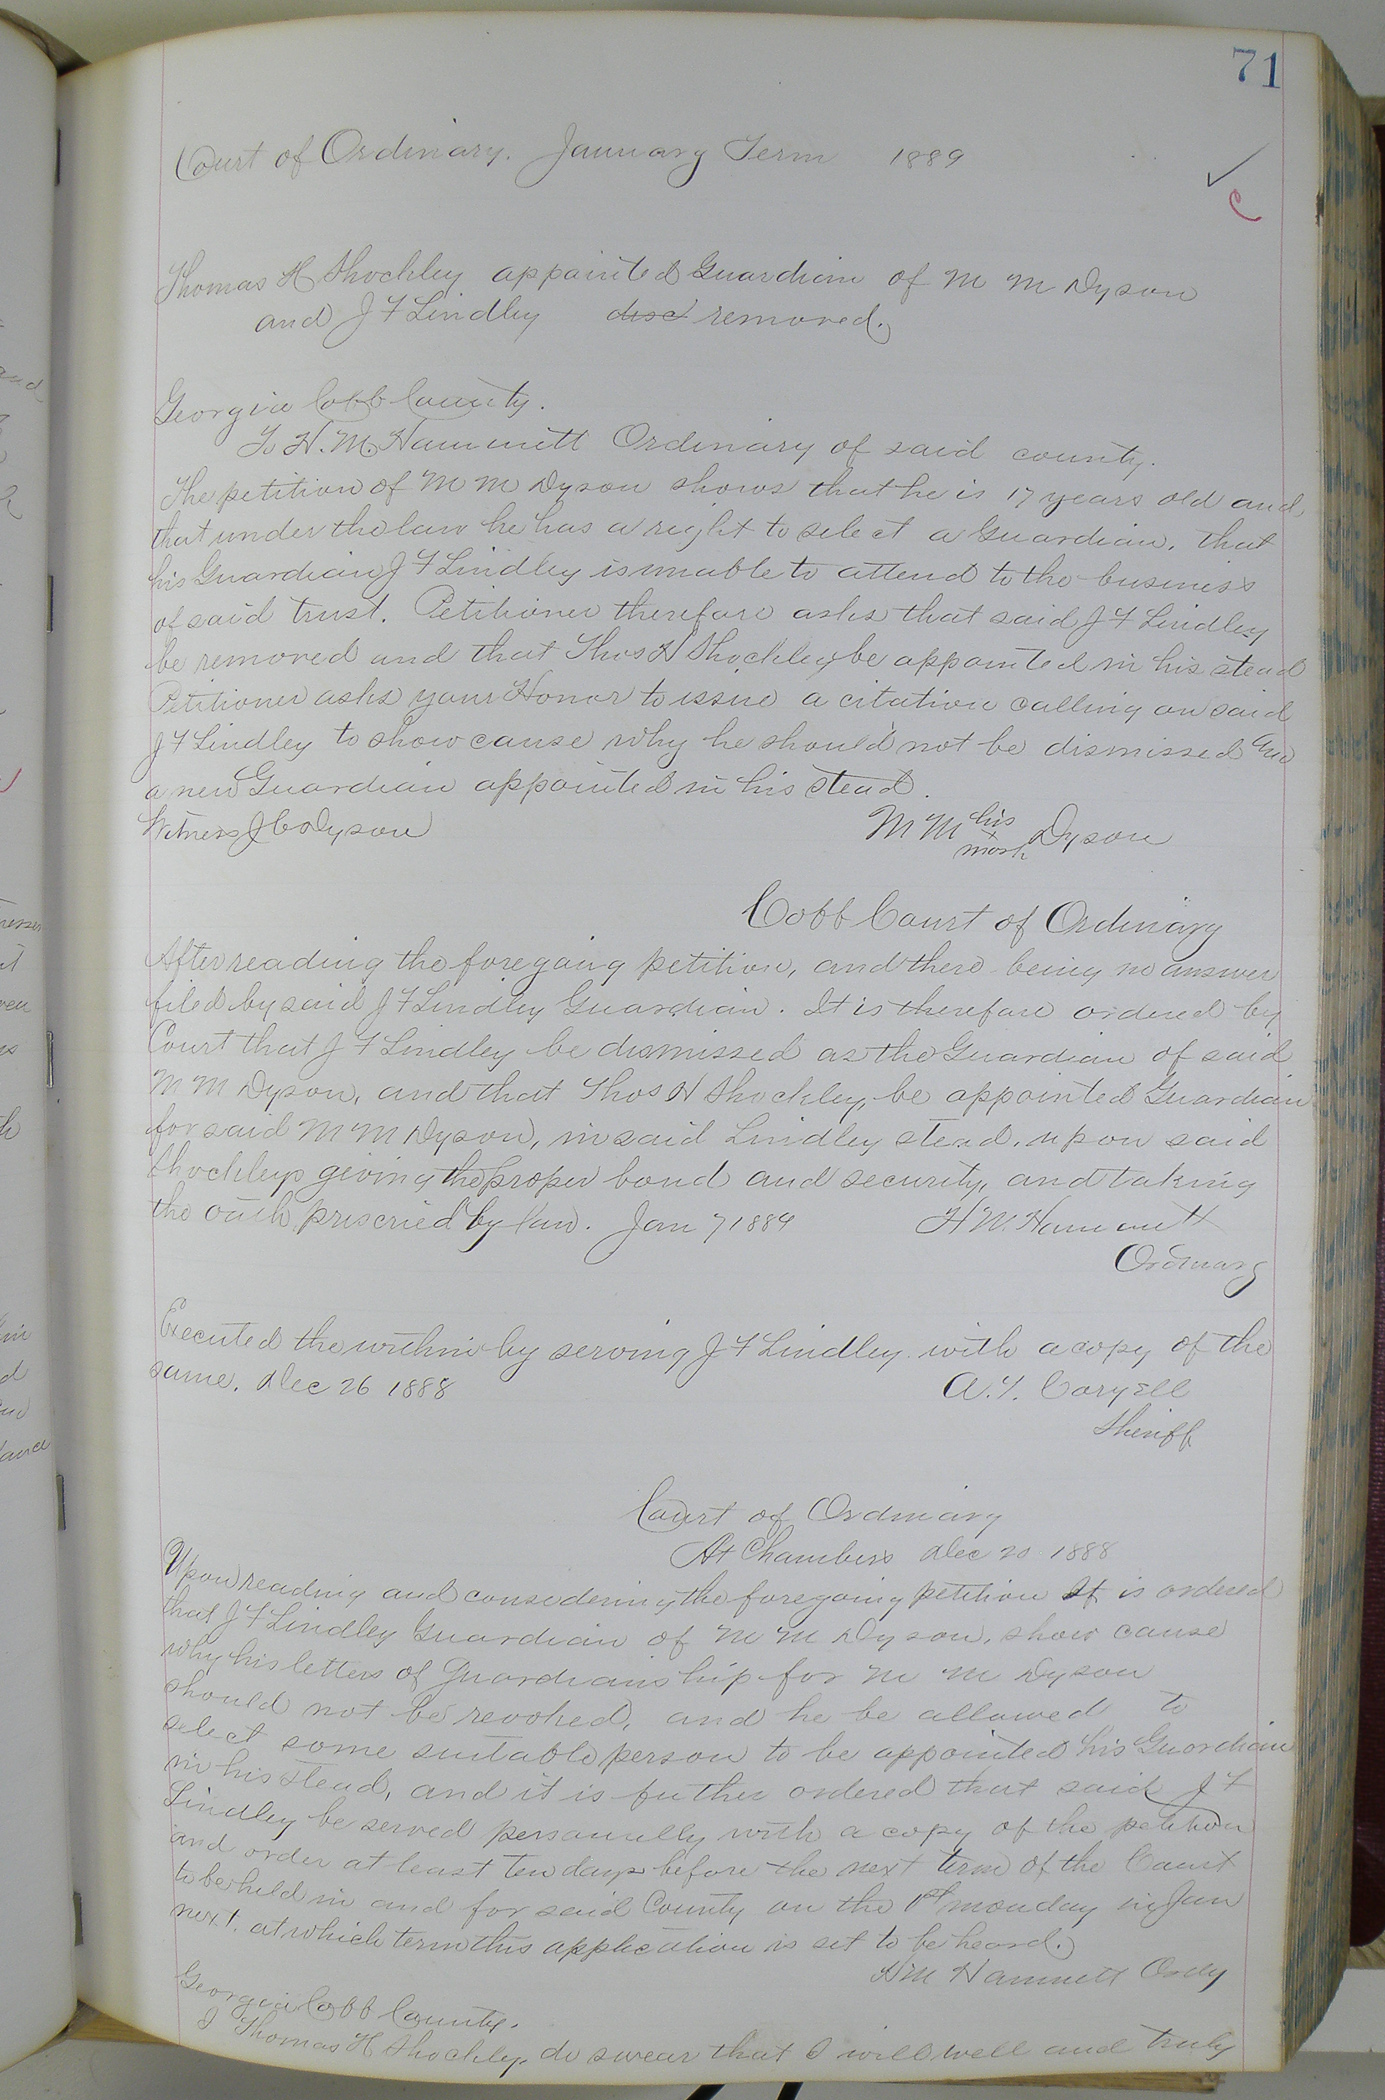 71
Court of Ordinary. January Term 1889
Thomas H Shockley appointed Guardian of M M Dyson
and J F Lindley disc removed.
Georgia Cobb County.
To H. M. Hammett Ordinary of said county.
The petition of M M Dyson shows that he is 17 years old and,
that under the law he has a right to select a Guardian, that
his Guardian J F Lindley is unable to attend to the business
of said trust. Petitioner therefore asks that said J F Lindley
be removed and that Thos H Shockley be appointed in his stead
Petitioner asks your Honor to issue a citation calling on said
J F Lindley to show cause why he should not be dismissed and
a new Guardian appointed in his stead.
Witness J C Dyson
M M his x mark Dyson
Cobb Court of Ordinary
After reading the foregoing petition, and there being no answer
filed by said J F Lindley Guardian. It is therefore ordered by
Court that J F Lindley be dismissed as the Guardian of said
M M Dyson, and that Thos H Shockley, be appointed Guardian
for said M M Dyson, in said Lindley stead, upon said
Shockleys giving the proper bond and security, and taking
the oath prescried by law. Jan 7 1889 H M. Hammett
Ordinary
Executed the within by serving J F Lindley with a copy of the
same. Dec 26 1888 A. Y. Coryell
Sheriff
Court of Ordinary
At Chambers Dec 20 1888
Upon reading and considering the foregoing petition It is ordered
that J F Lindley Guardian of M M Dyson, show cause
why his letters of Guardianship for M M Dyson
should not be revoked, and he be allowed to
select some suitable person to be appointed his Guardian
in his stead, and it is futher ordered that said J F
Lindley be served personally with a copy of the petition
and order at least ten days before the next term of the Court
to be held in and for said County on the 1st monday in Jan
next. at which term this application is set to be heard.
H M Hammett Ordy
Georgia Cobb County.
I Thomas H Shockley, do swear that I will well and truly